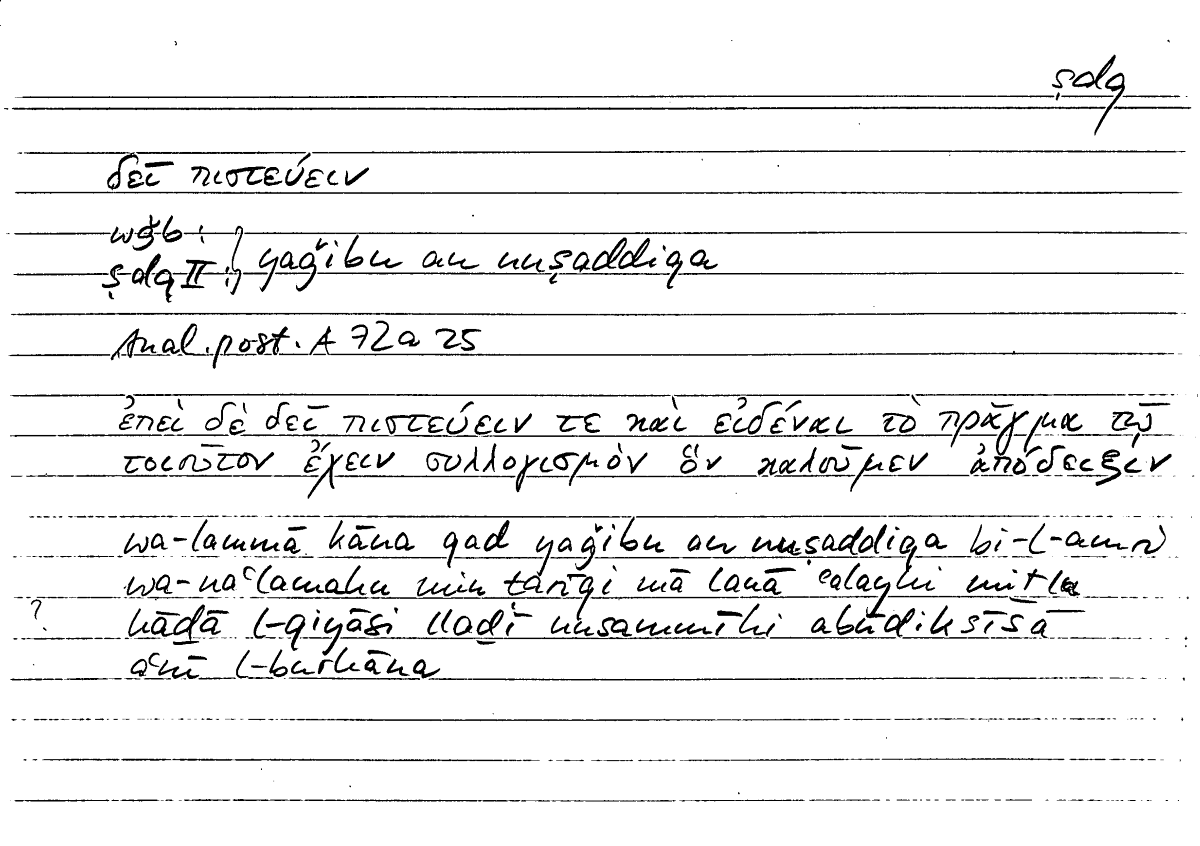 ṣdq
δεῖ πιστεύειν
wǧb :
ṣdq II : } yaǧibu an nuṣaddiqa
Anal. post. A 72a 25
ἐπεὶ δὲ δεῖ πιστεύειν τε καὶ εἰδέναι τὸ πρᾶγμα τῷ
τοιοῦτον ἔχειν συλλογισμὸν ὃν καλοῦμεν ἀπόδειξιν
wa-lammā kāna qad yaǧibu an nuṣaddiqa bi-l-amri
wa-naʿlamahu min tarīqi mā lanā ʿalayhi mitla
? hāḏā l-qiyāsi llaḏī nusammīhi abūdiksīsā
aʿnī l-burhāna